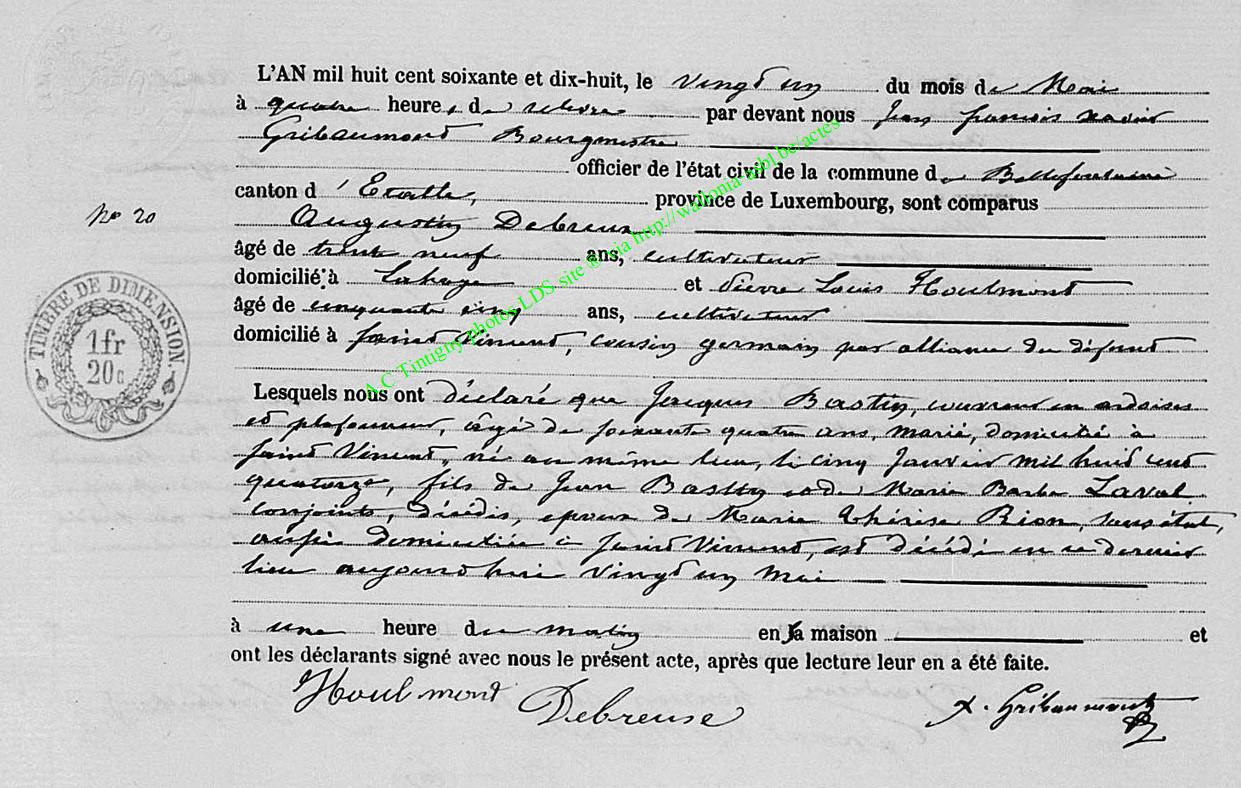 L'AN mil huit cent soixante et dix-huit, le vingt un du mois de Mai
à quatre heures de relevée par devant nous Jean françois xavier
Gribaumont Bourgmestre
officier de l'état civil de la commune de Bellefontaine
canton d'Etalle, province de Luxembourg, sont comparus
No 20
Augustin Debreux
âgé de trente neuf ans, cultivateur
domicilié à Lahage et Pierre Louis Houlmont
âgé de cinquante cinq ans, cultivateur
domicilié à Saint Vincent, cousin germain par alliance du défunt
TIMBRE DE DIMENSION.
1 fr
20 c
A.C Tintigny photos LDS site ® via http://wallonia-aibl.be/actes
Lesquels nous ont déclaré que Jacques Bastin, couvreur en ardoises
et plafonneur, âgé de soixante quatre ans, marié, domicilié à
Saint Vincent, né au même lieu, le cinq Janvier mil huit cent
quatorze, fils de Jean Bastin et de Marie Barbe Laval
conjoints, décédés, époux de Marie Thérèse Rion, sans état,
aussi domiciliée à Saint Vincent, est décédé en ce dernier
lieu aujourd'hui vingt un Mai
à une heure du matin en sa maison et
ont les déclarants signé avec nous le présent acte, après que lecture leur en a été faite.
Houlmont Debreuse X. Gribaumont